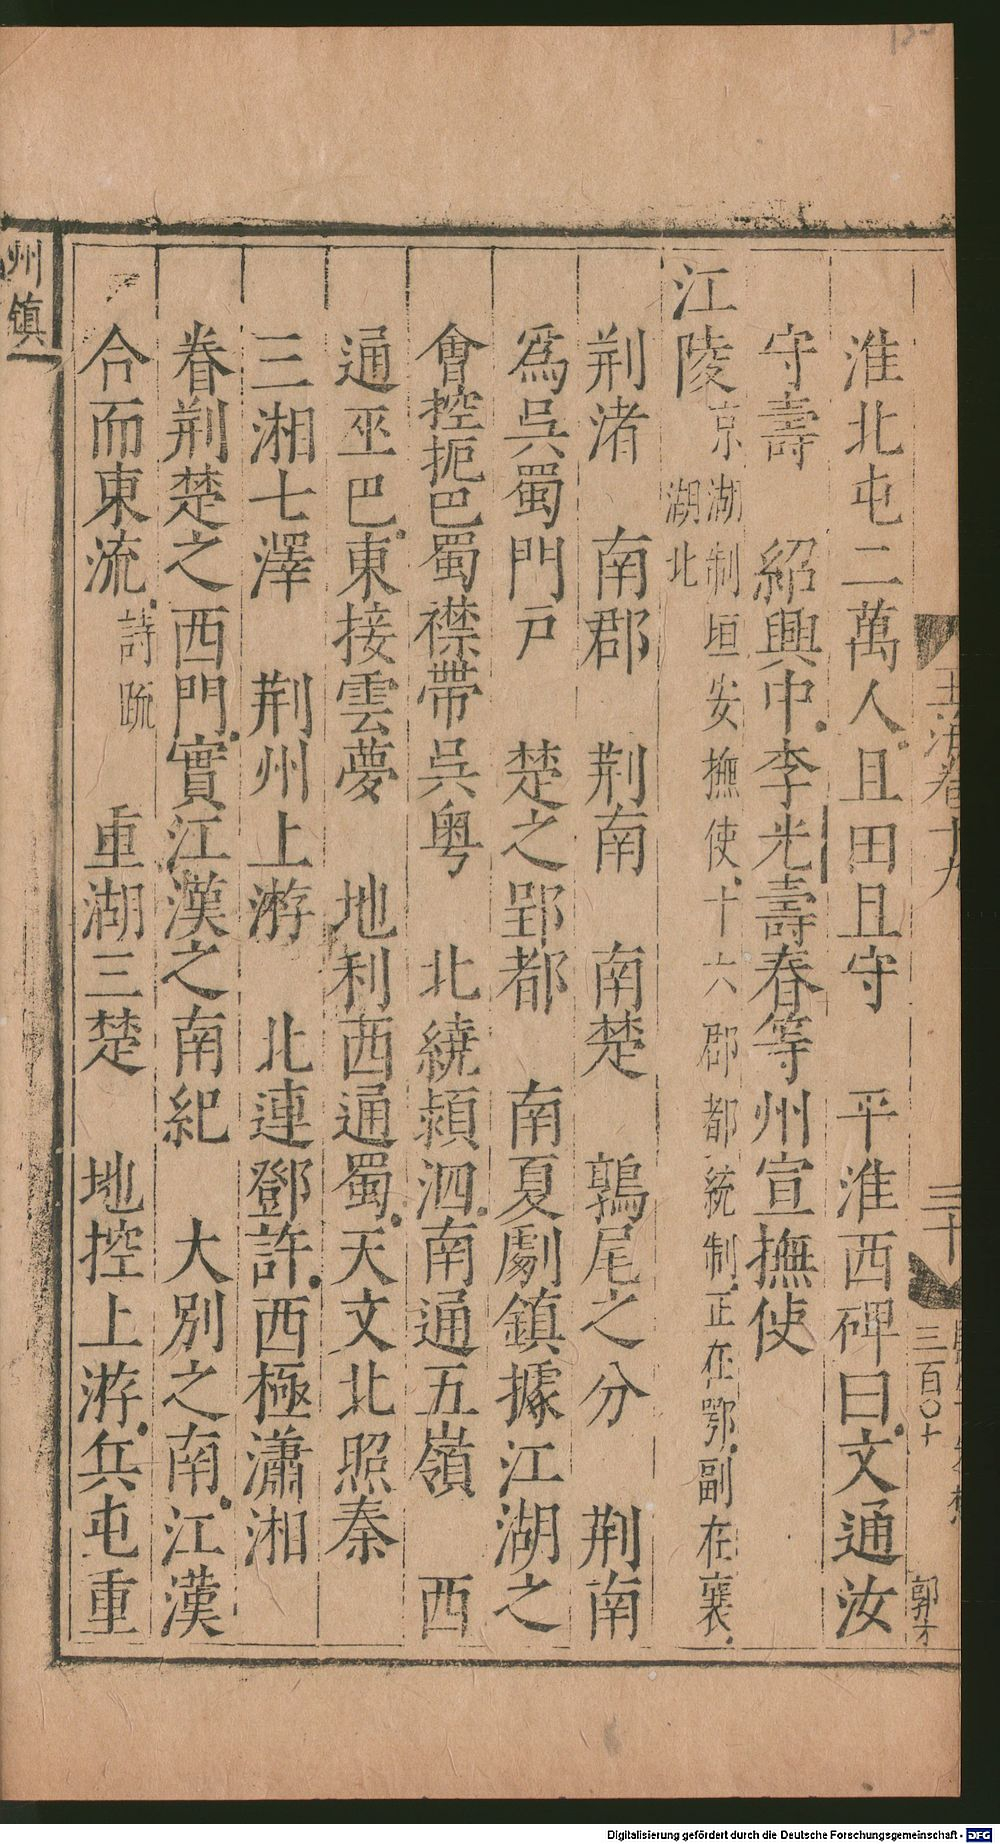 淮北屯二萬人且田且守　平淮西碑曰文通汝
守壽　紹興中李光壽春等州宣撫使
江陵京湖制垣安撫使十六郡都統制正在鄂副在襄
湖北
荆渚　南郡　荆南　南楚　鶉尾之分　荆南
爲吳蜀門戶　楚之郢都　南夏劇鎮據江湖之
會控扼巴蜀襟帶吳粤　北繞潁泗南通五嶺　西
通巫巴東接雲夢　地利西通蜀天文北照秦
三湘七澤　荆州上游　北連鄧許西極瀟湘
眷荆楚之西門實江漢之南紀　大別之南江漢
合而東流詩疏　重湖三楚　地控上游兵屯重
州鎮
卷十九
三十
三百〇十
郭才
Digitalisierung gefördert durch die Deutsche Forschungsgemeinschaft - DFG